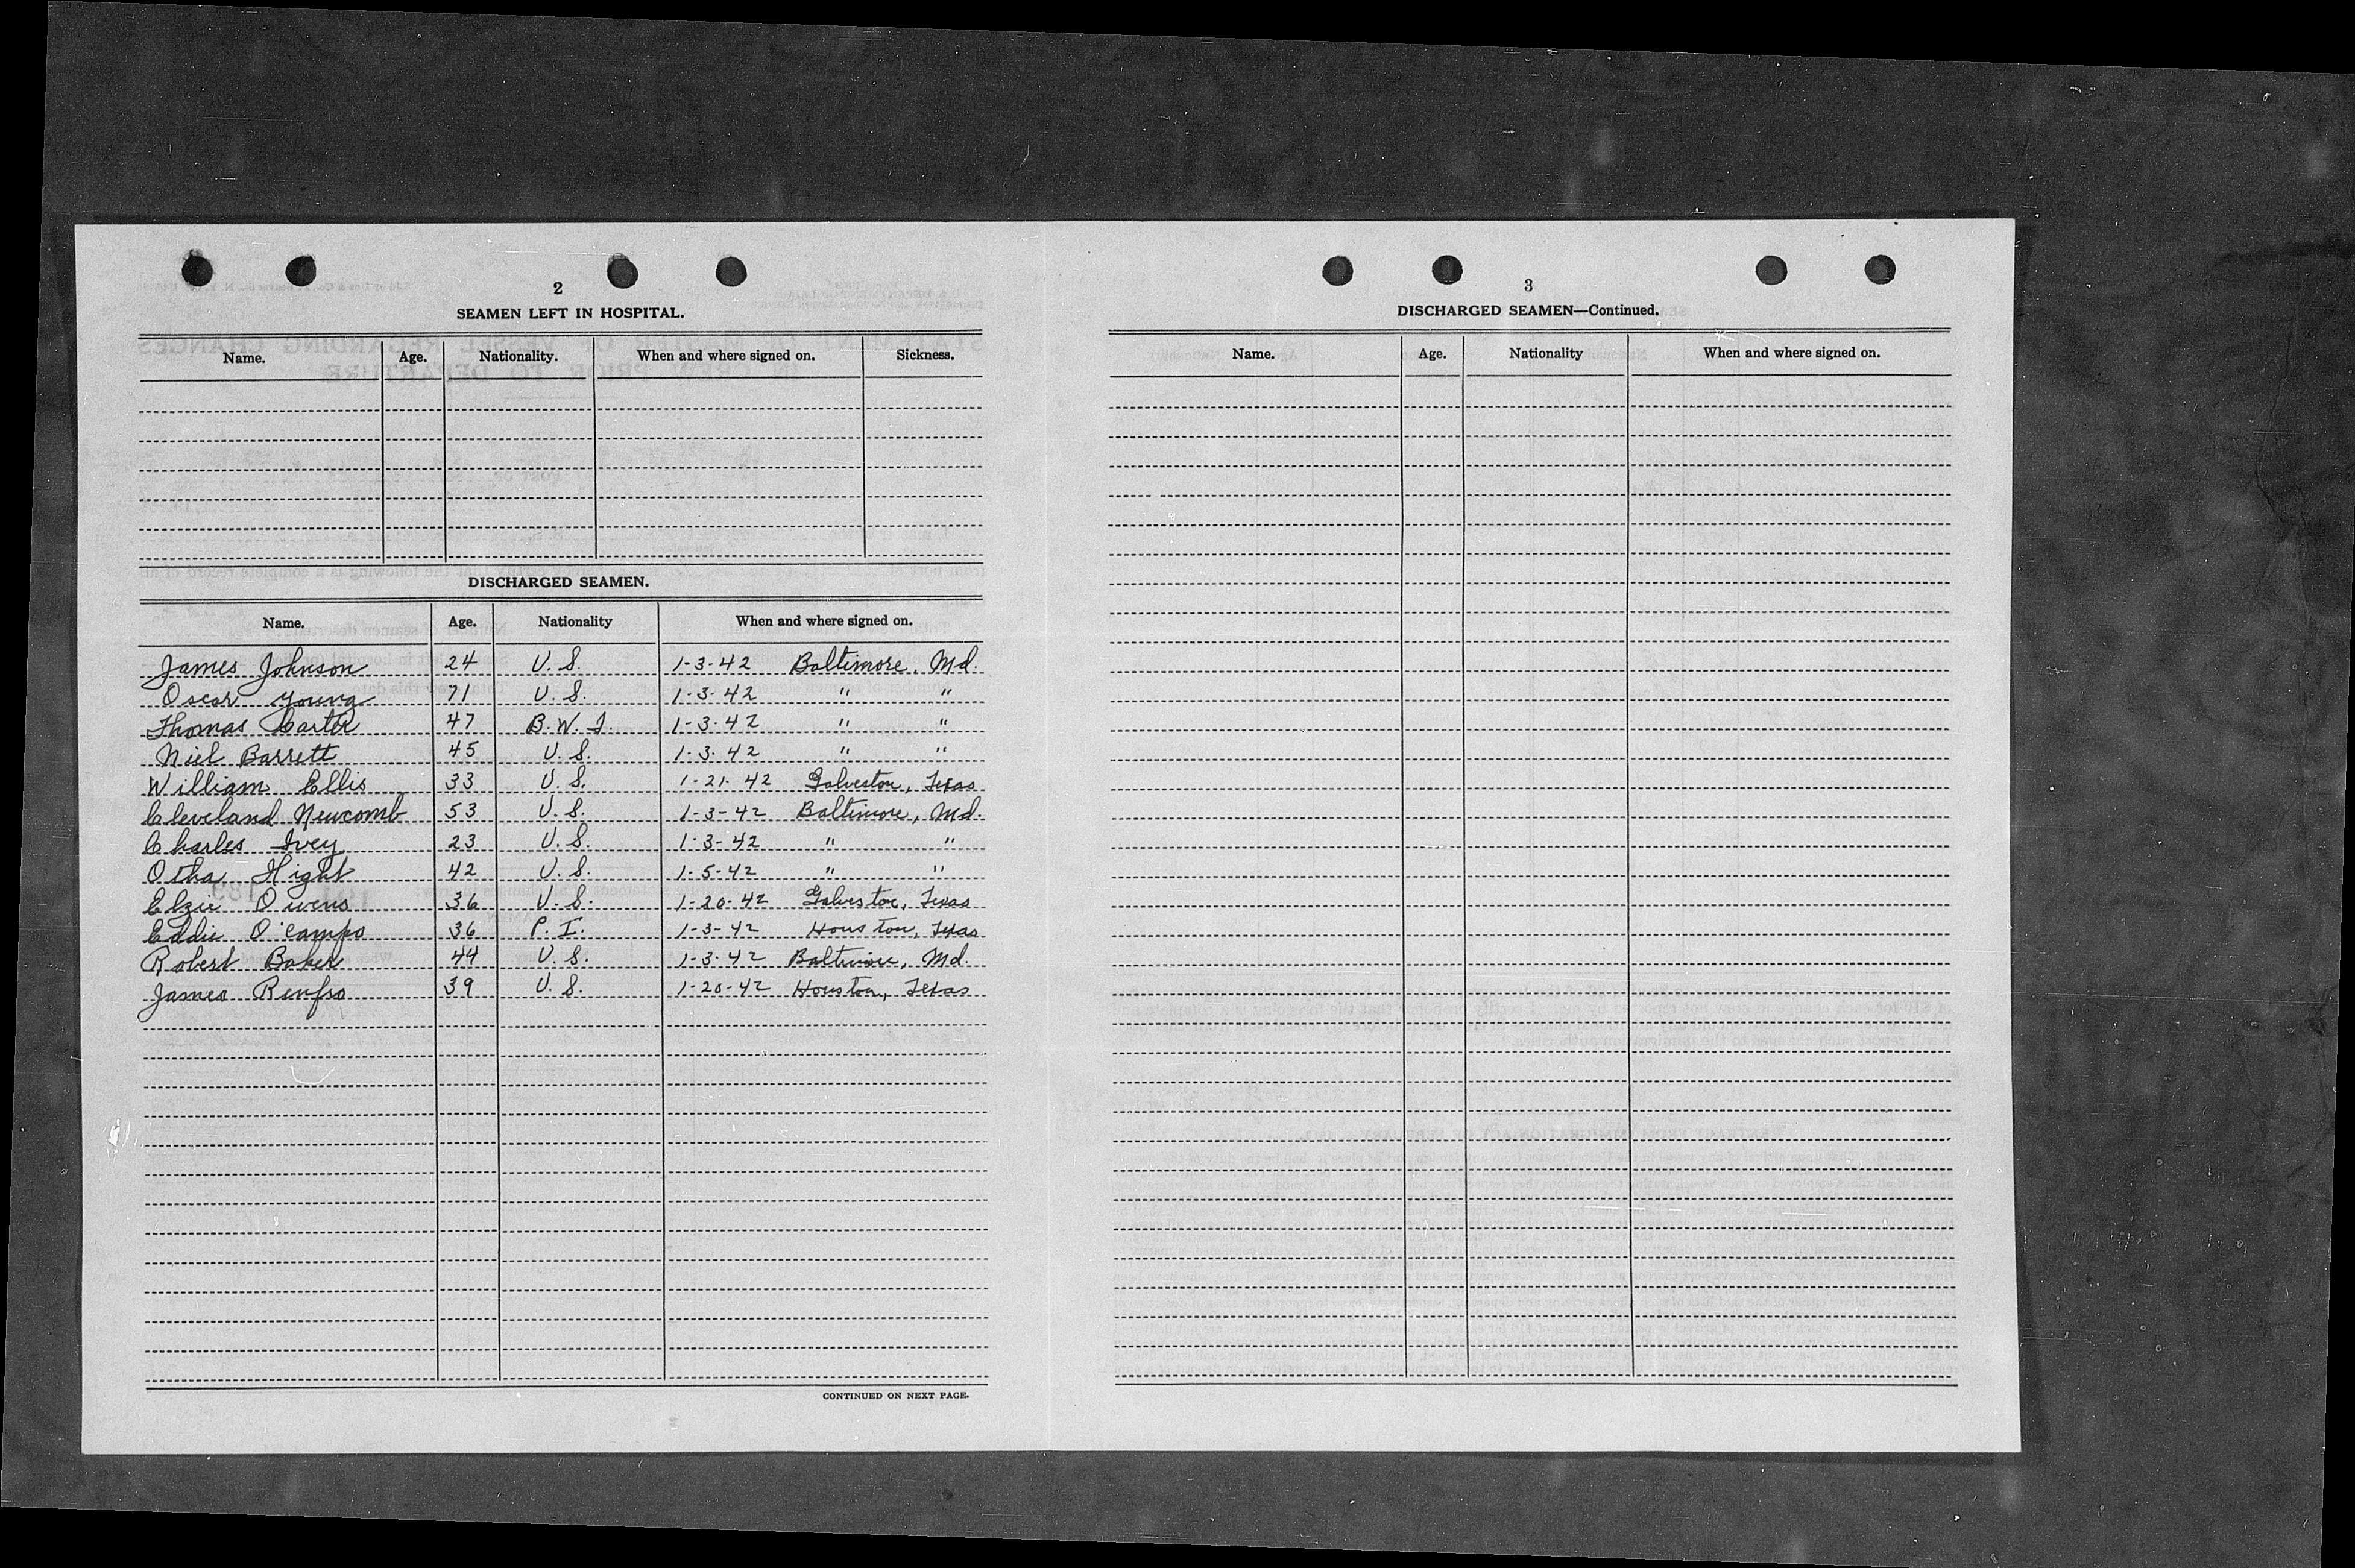 2
SEAMEN LEFT IN HOSPITAL.
Name. Age. Nationality. When and where signed on. Sickness.
DISCHARGED SEAMEN.
Name. Age. Nationality When and where signed on.
James Johnson 24 U.S. 1-3-42 Baltimore, Md.
Oscar Young 71 U.S. 1-3-42 " "
Thomas Carter 47 B.W.I. 1-3-42 " "
Niel Barrett 45 U.S. 1-3-42 " "
William Ellis 33 U.S. 1-21-42 Galveston, Texas
Cleveland Newcomb 53 U.S. 1-3-42 Baltimore, Md.
Charles Ivey 23 U.S. 1-3-42 " "
Otha Hight 42 U.S. 1-5-42 " "
Elzie Owens 36 U.S. 1-20-42 Galveston, Texas
Eddie O'campo 36 P.I. 1-3-42 Houston, Texas
Robert Baker 44 U.S. 1-3-42 Baltimore, Md.
James Renfro 39 U.S. 1-20-42 Houston, Texas
CONTINUED ON NEXT PAGE.
3
DISCHARGED SEAMEN—Continued.
Name. Age. Nationality When and where signed on.